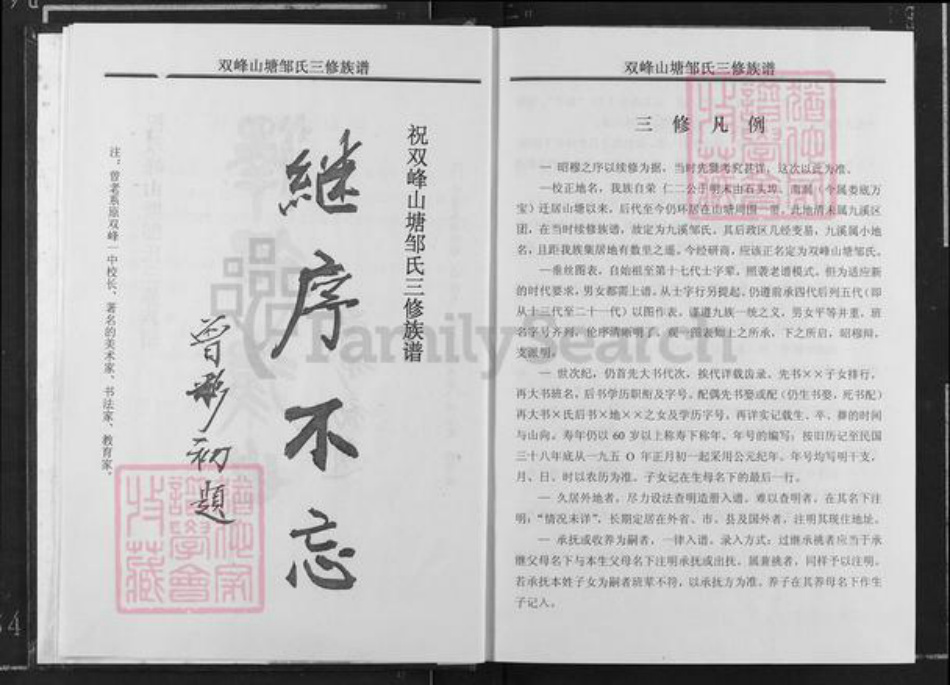 双峰山塘邹氏三修族谱
祝双峰山塘邹氏三修族谱
继序不忘
曾彰初题
注：曾老系原双峰一中校长、著名的美术家、书法家、教育家。
双峰山塘邹氏三修族谱
三修凡例
一 昭穆之序以续修为据，当时先贤考究甚详，这次以此为准。
一校正地名，我族自荣（仁二公于明末由石头埠、南冲（今属娄底万
宝）迁居山塘以来，后代至今仍环居在山塘周围一带，此地清末属九溪区
团，在当时续修族谱，故定为九溪邹氏。其后政区几经变易，九溪属小地
名，且距我族集居地有数里之遥。今经研商，应该正名定为双峰山塘邹氏。
一垂丝图表，自始祖至第十七代士字辈，照袭老谱模式。但为适应新
的时代要求，男女都需上谱。从士字行另提起，仍遵前承四代后列五代（即
从十三代至二十一代）以图作表。谨遵九族一统之义，男女平等并重，班
名字号齐列，伦序清晰明了，观一图表知上之所承，下之所启，昭穆辩，
支派明。
一 世次纪，仍首先大书代次，挨代详载齿录。先书××子女排行，
再大书班名，后书学历职衔及字号。配偶先书娶或配（仍生书娶，死书配）
再大书×氏后书×地××之女及学历字号，再详实记载生、卒、葬的时间
与山向。寿年仍以 60 岁以上称寿下称年。年号的编写：按旧历记至民国
三十八年底从一九五 O 年正月初一起采用公元纪年。年号均写明干支，
月、日、时以农历为准。子女记在生母名下的最后一行。
一 久居外地者，尽力设法查明造册入谱。难以查明者，在其名下注
明：“情况未详”，长期定居在外省、市、县及国外者，注明其现住地址。
一 承抚或收养为嗣者，一律入谱。录入方式：过继承祧者应当于承
继父母名下与本生父母名下注明承抚或出抚。属兼祧者，同样予以注明。
若承抚本姓子女为嗣者班辈不符，以承抚方为准。养子在其养母名下作生
子记入。
FamilySearch